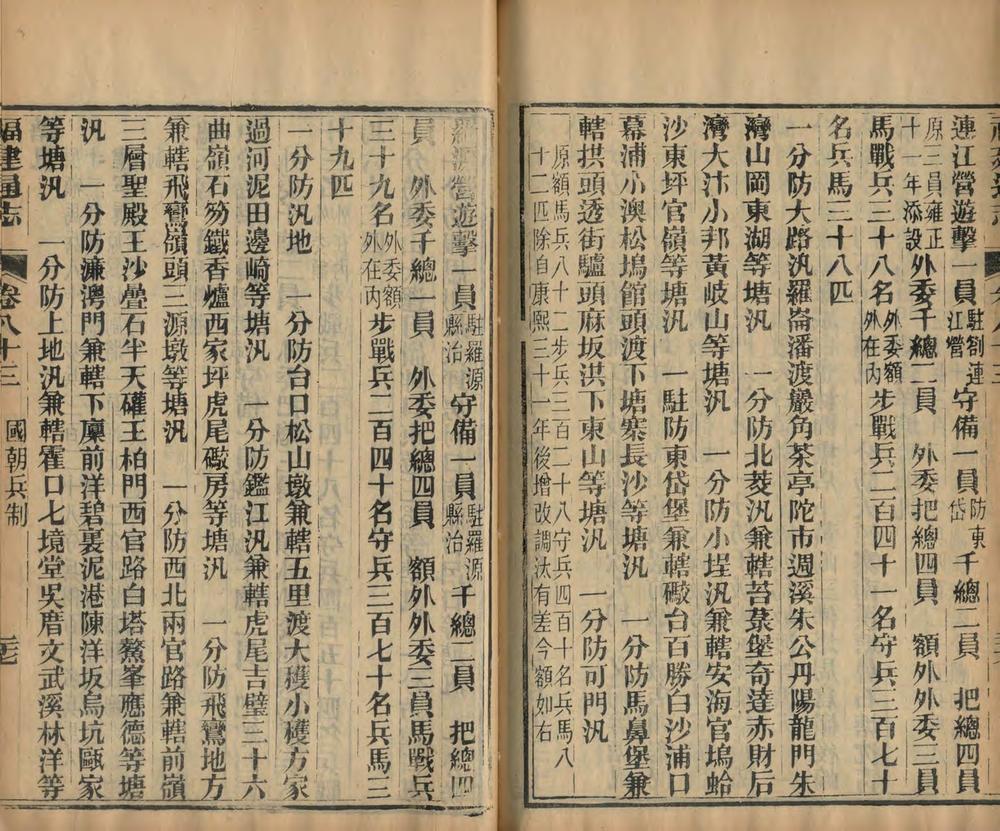 連江營遊擊一員駐劄連江營守備一員防東岱千總二員　把總四員
原三員雍正十一年添設外委千總二員　外委把總四員　額外外委三員
馬戰兵三十八名外委額外在內步戰兵二百四十一名守兵三百七十
名兵馬三十八匹
一分防大路汛羅崙潘渡巖角茶亭陀市週溪朱公丹陽龍門朱
灣山岡東湖等塘汛　一分防北茭汛兼轄苔菉堡奇達赤財后
灣大汴小邦黃岐山等塘汛　一分防小埕汛兼轄安海官塢蛤
沙東坪官嶺等塘汛　一駐防東岱堡兼轄礮台百勝白沙浦口
幕浦小澳松塢館頭渡下塘寨長沙等塘汛　一分防馬鼻堡兼
轄拱頭透街驢頭麻坂洪下東山等塘汛　一分防可門汛
原額馬兵八十二步兵三百二十八守兵四百十名兵馬八
十二匹除自康熙三十一年後增改調汰有差今額如右
羅源營遊擊一員駐羅源縣治守備一員駐羅源縣治千總二員　把總四
員　外委千總一員　外委把總四員　額外外委三員馬戰兵
三十九名外委額外在內步戰兵二百四十名守兵三百七十名兵馬三
十九匹
一分防汛地　一分防台口松山墩兼轄五里渡大穫小穫方家
過河泥田邊崎等塘汛　一分防鑑江汛兼轄虎尾吉壁三十六
曲嶺石笏鐵香爐西家坪虎尾礮房等塘汛　一分防飛鸞地方
兼轄飛鸞嶺頭三源墩等塘汛　一分防西北兩官路兼轄前嶺
三層聖殿王沙疊石半天礶王柏門西官路白塔鰲峯應德等塘
汛　一分防濂灣門兼轄下廩前洋碧裏泥港陳洋坂烏坑甌家
等塘汛　一分防上地汛兼轄霍口七境堂吳厝文武溪林洋等
福建通志　卷八十三　國朝兵制